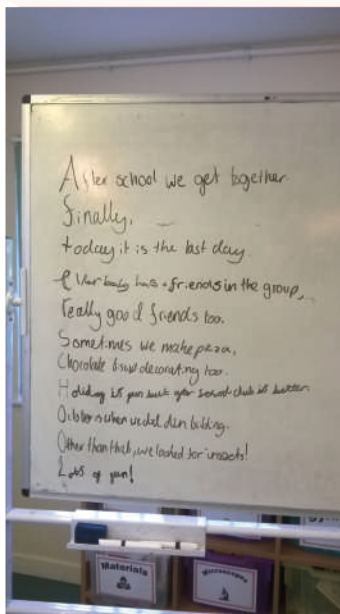 After school we get together.
finally,
today it is the last day.
everbody has friends in the group,
really good friends too.
Sometimes we make pizza,
Chocolate biscuit decorating too.
Holiday is fun but after school club is better.
October is when we did den building.
Other than that, we looked for insects!
Lots of fun!
Materials
Microscopes